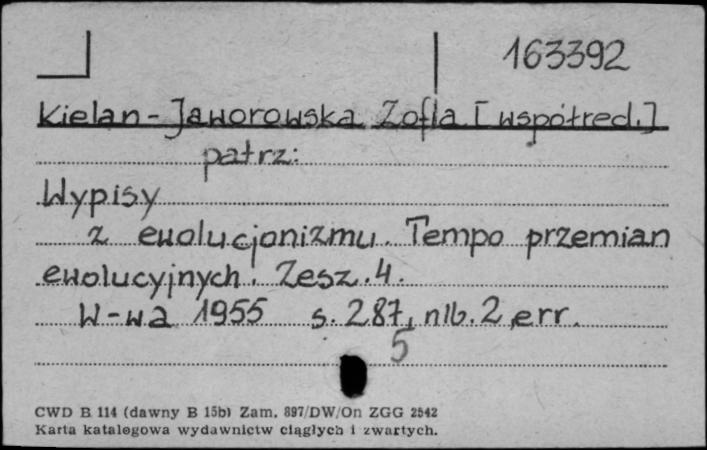 163392
Kielan-Jaworowska Zofia [współred.]
patrz:
Wypisy
z ewolucjonizmu. Tempo przemian
ewolucyjnych. Zesz. 4.
W-wa 1955 s. 287, nlb. 2, err.
5
CWD B 114 (dawny B 15b) Zam. 897/DW/On ZGG 2542
Karta katalogowa wydawnictw ciągłych i zwartych.